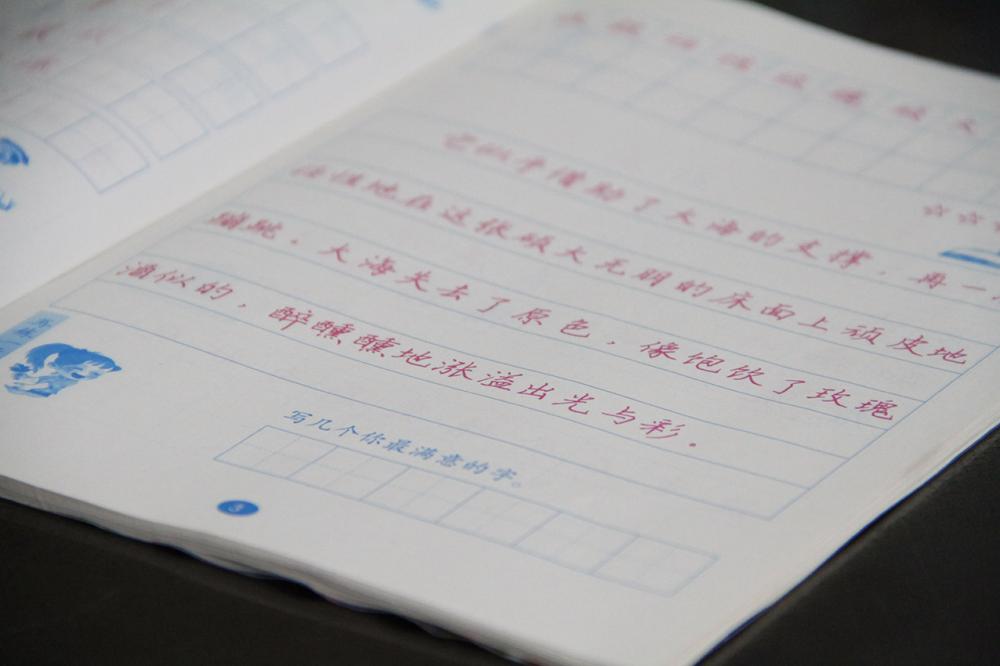 它似乎借助了大海的支撑,再一
在这张硕大无朋的床面上顽皮地
蹦跳。大海失去了原色,像饱饮了玫瑰
酒似的,醉醺醺地涨溢出光与彩。
写几个你最满意的字。
3